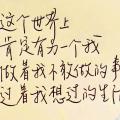 这个世界上
肯定有另一个我
做着我不敢做的事
过着我想过的生活